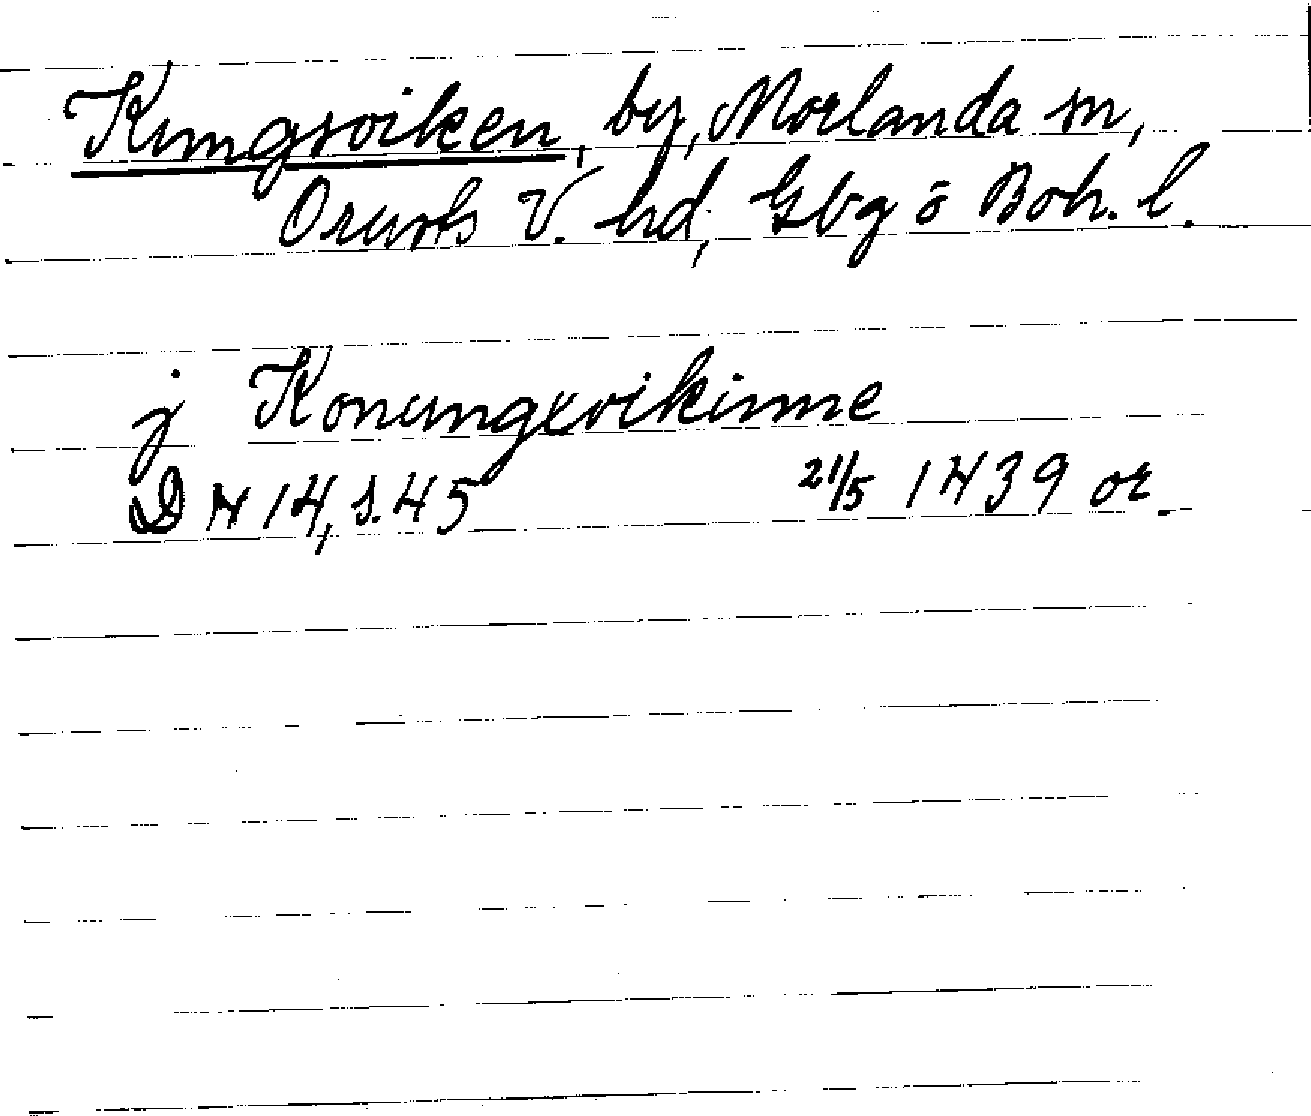 Kungsviken, by, Morlanda sn,
Orusts V. hd, Gbg o Boh. l.
j Konungxvikinne
DN 14, s. 45 21/5 1439 or.